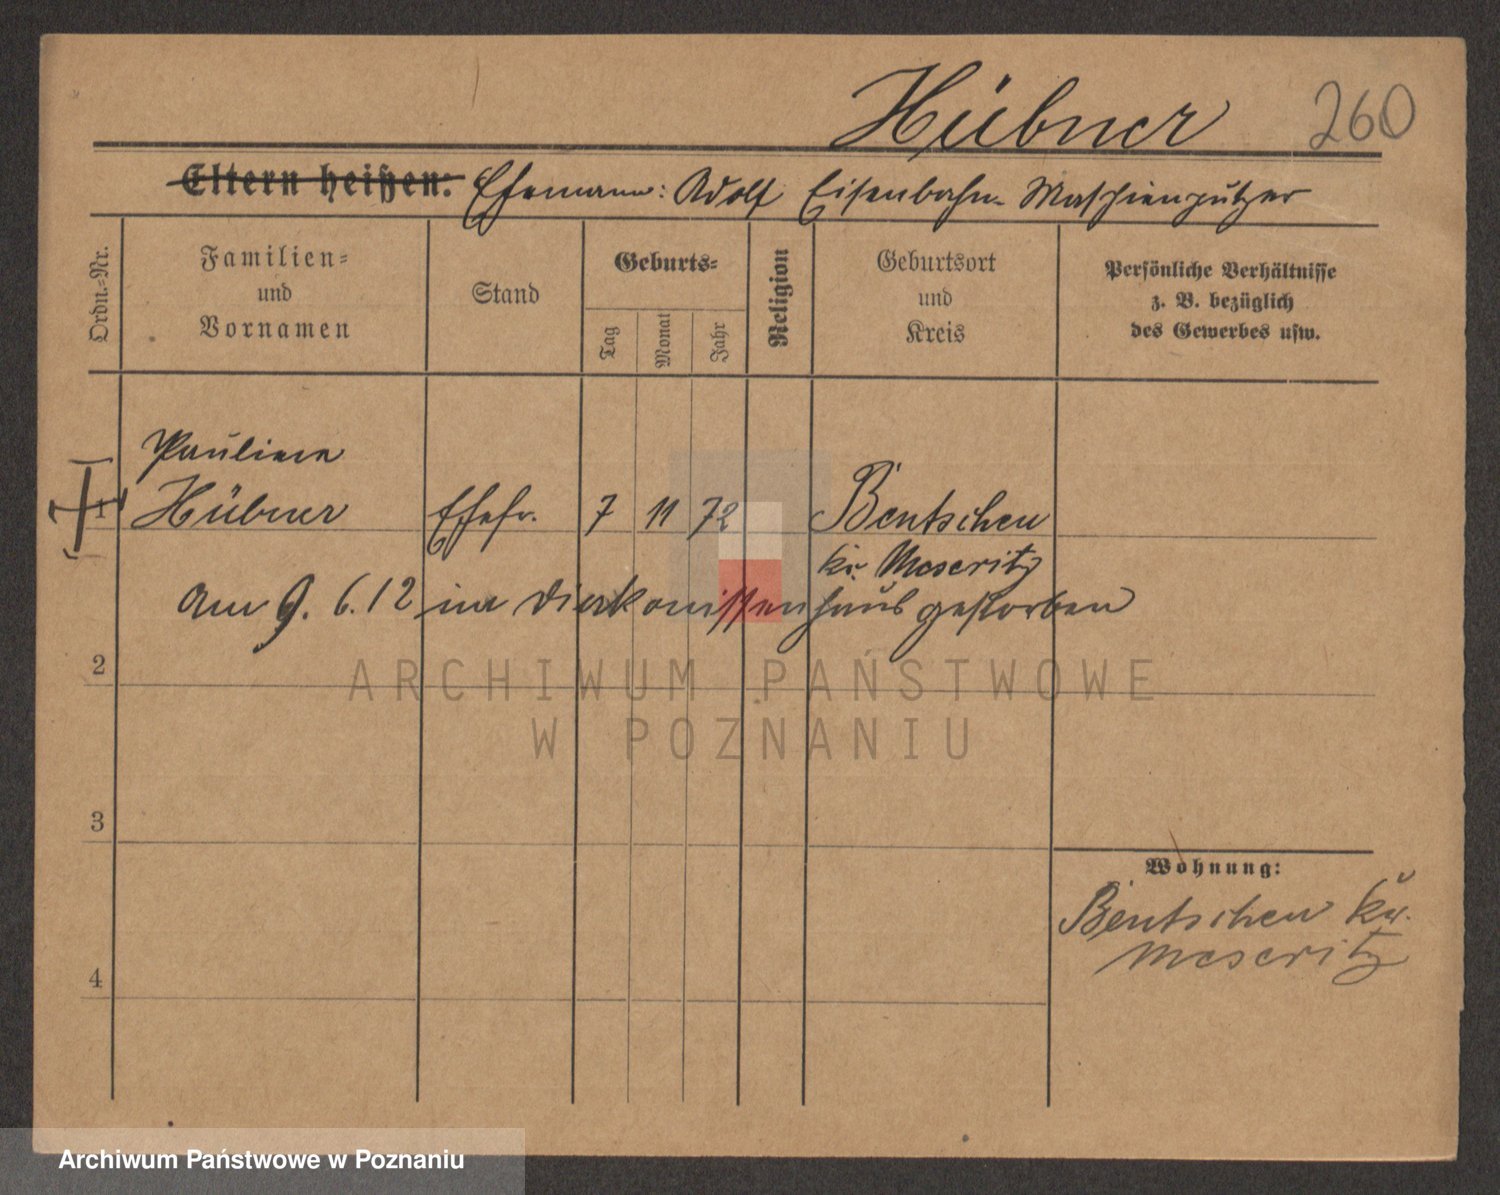 Hübner 260
Eltern heißen: Ehemann: Adolf Eisenbahn-Maschienputzer
Ordn.-Nr.
Familien-
und
Vornamen
Stand
Geburts-
Tag
Monat
Jahr
Religion
Geburtsort
und
Kreis
Persönliche Verhältnisse
z. B. bezüglich
des Gewerbes usw.
Pauline
1 Hübner Ehefr. 7 11 72 Bentschen
Kr. Meseritz
Am 9. 6. 12 im Diakonissenhaus gestorben
2
3
4
Wohnung:
Bentschen Kr.
Meseritz
ARCHIWUM PAŃSTWOWE
W POZNANIU
Archiwum Państwowe w Poznaniu